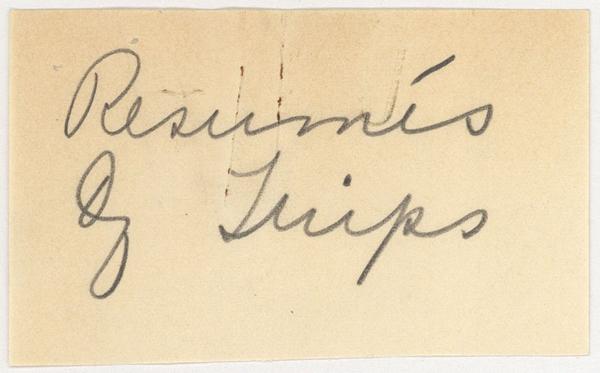 Resumés
Of Trips